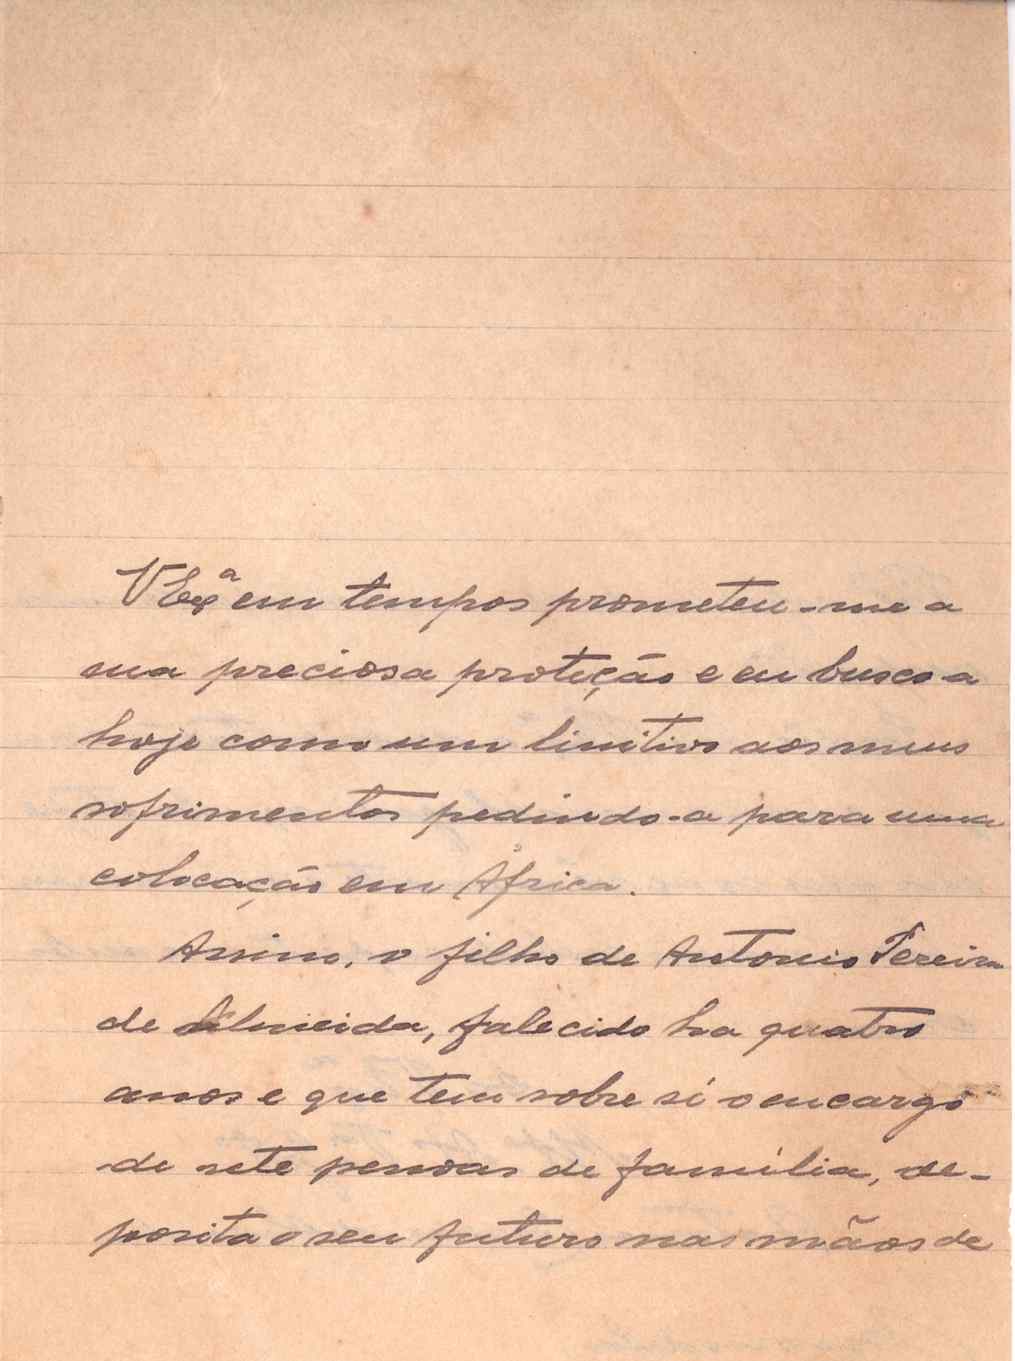 V Exª em tempos prometeu-me a
sua preciosa proteção e eu busco-a
hoje como um linitivo aos meus
sofrimentos pedindo-a para uma
colocação em África.
Assim, o filho de Antonio Pereira
de Almeida, falecido ha quatro
anos e que tem sobre si o encargo
de sete pessoas de família, de-
posita o seu futuro nas mãos de